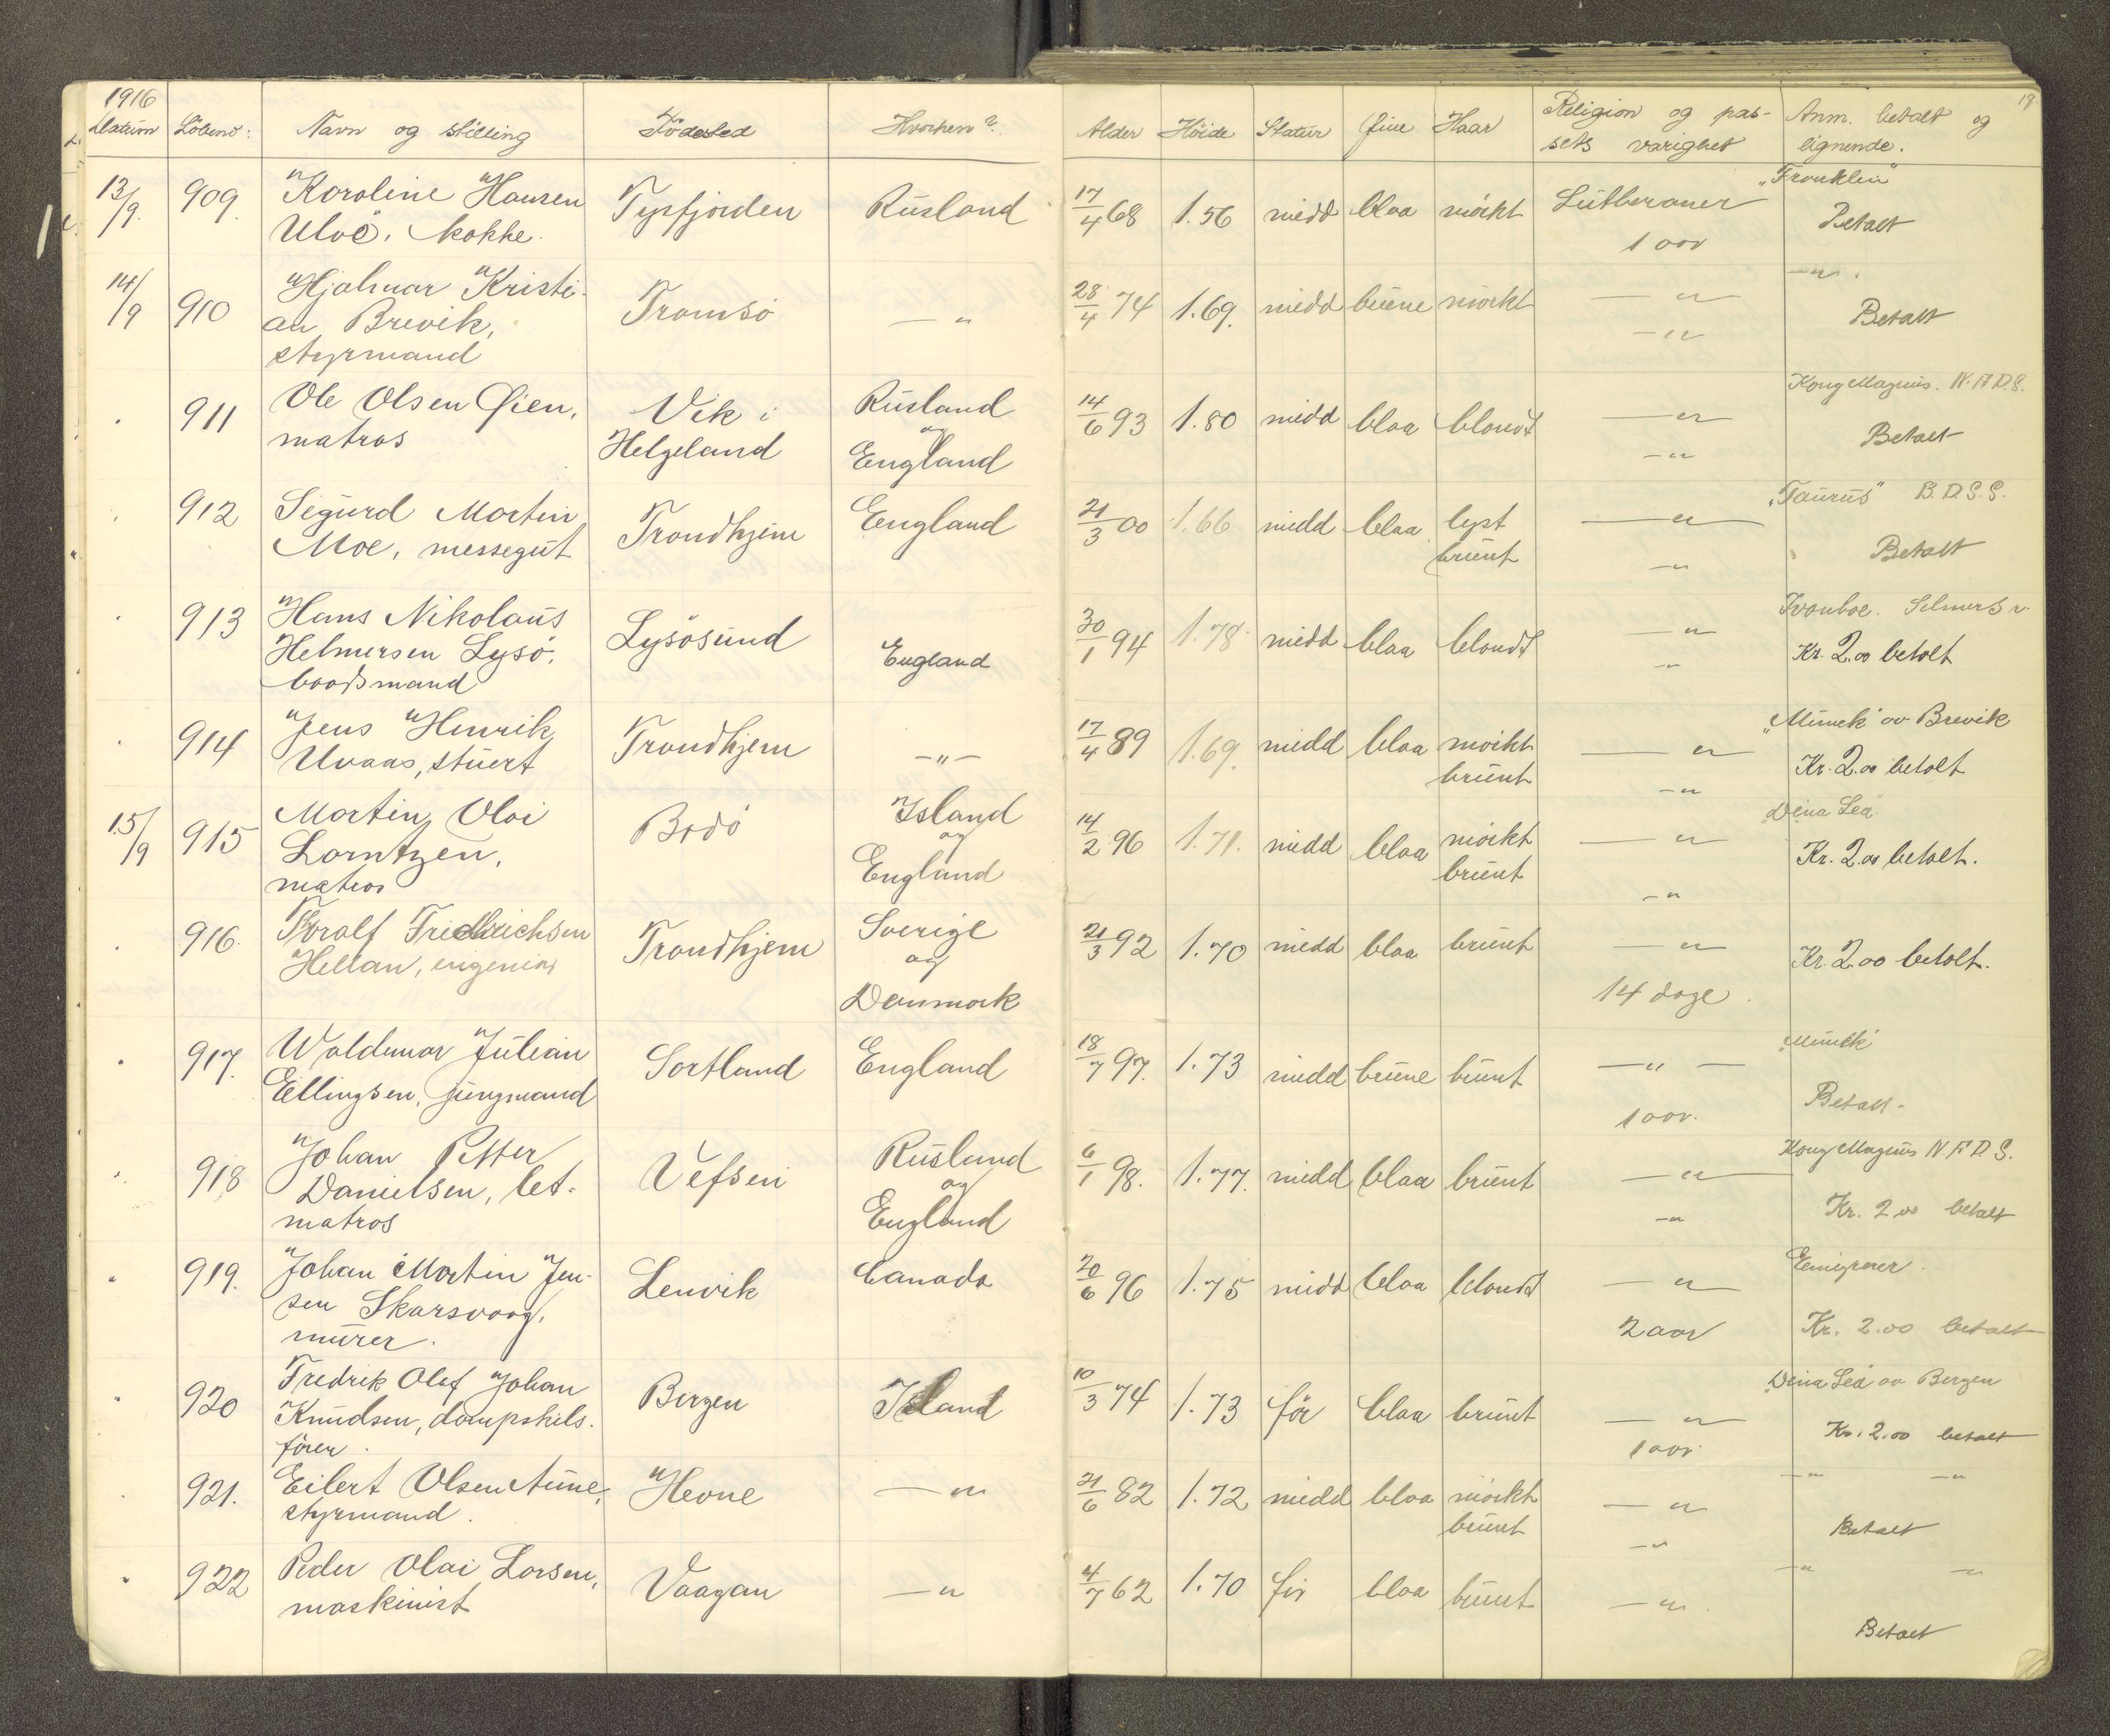 1916
Datum Löbenr: Navn og stilling Födested Hvorhen? Alder Höide Statur Öine Haar Religion og pas- Anm. betalt og
sets varighet lignende.
19.
13/9 909. Karoline Hansen Tysfjorden Rusland 17/4 68 1.56 midd blaa mörkt Lutheraner "Franklin"
Ulvö, kokke. 1 aar Betalt
14/9 910 Hjalmar Kristi- Tromsö — " 28/4 74 1.69. midd brune mörkt — " — — " —
an Brevik, — " Betalt
styrmand
" 911 Ole Olsen Øien, Vik i Rusland 14/6 93 1.80 midd blaa blondt — " — Kong Magnus. N.F.D.S.
matros Helgeland og — " Betalt
England
" 912 Sigurd Martin Trondhjem England 21/3 00 1.66 midd blaa lyst — " — "Taurus" B.D.S.S.
Moe, messegut brunt — " Betalt
" 913 Hans Nikolaus Lysösund England 30/1 94 1.78 midd blaa blondt — " Ivanhoe.
Helmersen Lysö, — " Kr. 2.00 betalt
baadsmand
" 914 Jens Henrik Trondhjem — " — 17/4 89 1.69. midd blaa mörkt — " — "Mimek" av Brevik
Uvaas, stuert brunt — " Kr. 2.00 betalt
15/9 915 Martin Olai Bodö Island 14/2 96 1.71. midd blaa mörkt — " — "Dina Lea"
Lorntzen, og brunt — " Kr. 2.00 betalt.
matros England
" 916. Toralf Friedrichsen Trondhjem Sverige 21/3 92 1.70 midd blaa brunt — " — Kr. 2.00 betalt.
Hellan, ingeniør og 14 dage
Danmark
" 917. Waldemar Julian Sortland England 18/7 97. 1.73 midd brune brunt — " — "Mimek"
Ellingsen, jungmand 1 aar. Betalt.
" 918 Johan Petter Vefsen Rusland 6/1 98. 1.77. midd blaa brunt — " — Kong Magnus N.F.D.S.
Danielsen, let- og — " Kr. 2.00 betalt
matros England
" 919. Johan Martin Jen- Lenvik Canada 20/6 96 1.75 midd blaa blondt — " — Emigrerer.
sen Skarsvaag, 2 aar Kr. 2.00 betalt
murer.
" 920 Fredrik Olaf Johan Bergen Island 10/3 74 1.73 før blaa brunt — " — "Dina Lea" av Bergen
Knudsen, dampskibs- 1 aar. Kr. 2.00 betalt
fører.
" 921. Eilert Olsen Aune, Hevne — " 21/6 82 1.72 midd blaa mörkt — " — — " — — " —
styrmand. brunt — " Betalt
" 922 Peder Olai Larsen, Vaagan — " 4/7 62 1.70 før blaa brunt — " — — " — — " —
maskinist — " Betalt